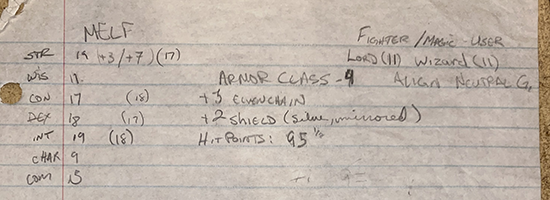 MELF
FIGHTER/MAGIC-USER
STR 19 +3/+7) (17)
LORD (11) WIZARD (11)
WIS 17
ARMOR CLASS -9
ALIGN NEUTRAL G.
CON 17 (18)
+3 ELVENCHAIN
DEX 18 (17)
+2 SHIELD (Silver, mirrored)
INT 19 (18)
HIT POINTS: 95 1/2
CHAR 9
COM 15